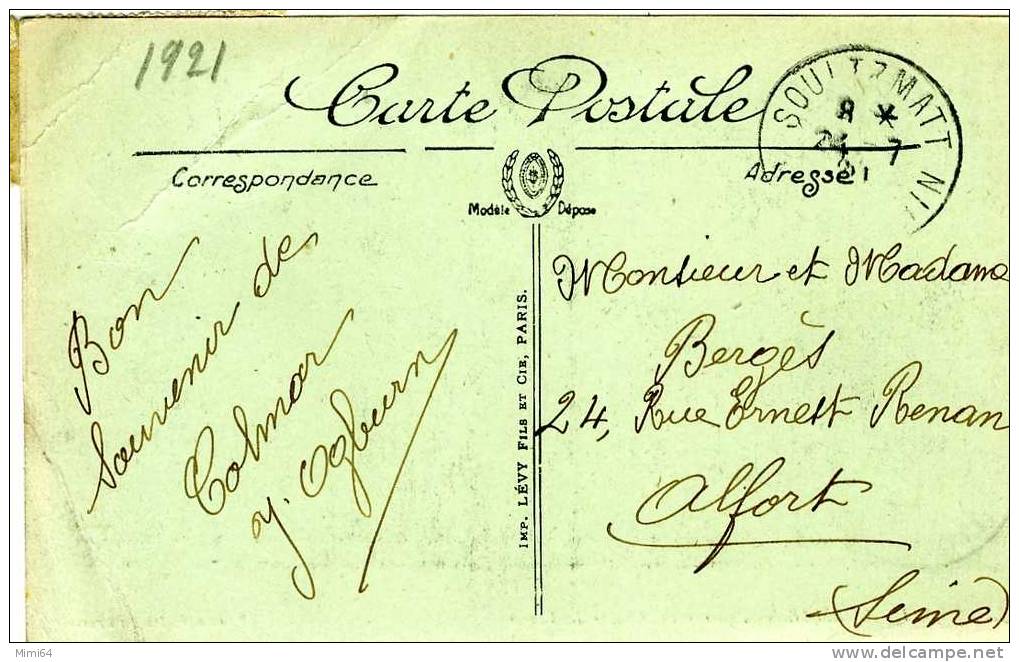 1921
Carte Postale
SOULTZMATT
8 *
24 7
Correspondance
Adresse
Modèle Dépose
Bon
Souvenir de
Colmar
Y. Ogburn
IMP. LÉVY FILS ET CIE, PARIS.
Monsieur et Madame
Bergès
24, Rue Ernest Renan
Alfort
(Seine)
Mimi64
delcampe.net